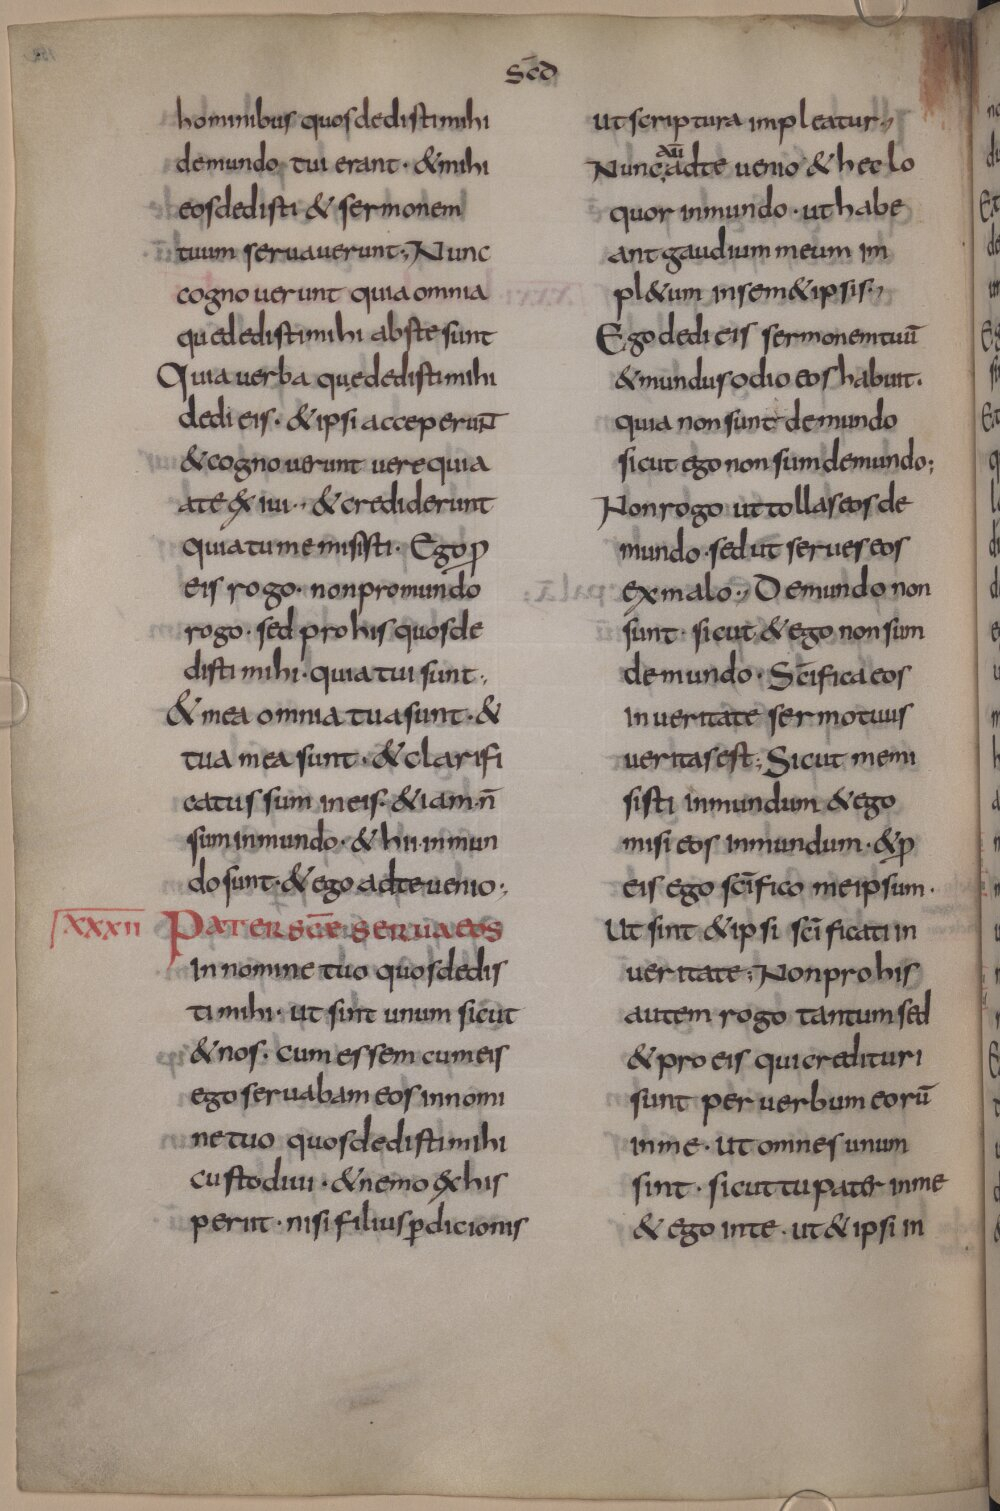 sēd
hominibus quos dedisti mihi
de mundo tui erant · & mihi
eos dedisti & sermonem
tuum servaverunt ; Nunc
cognoverunt quia omnia
quę dedisti mihi abs te sunt
Quia verba quę dedisti mihi
dedi eis · & ipsi acceperun̄t
& cognoverunt vere quia
a te exivi · & crediderunt
quia tu me misisti · Ego ꝓ
eis rogo · non pro mundo
rogo · sed pro his quos de
disti mihi · quia tui sunt ;
& mea omnia tua sunt · &
tua mea sunt · & clarifi
catus sum in eis · & iam n̄
sum in mundo · & hii in mun
do sunt · & ego ad te venio ;
XXXII PATER SCĒ SERVA EOS
in nomine tuo quos dedis
ti mihi · ut sint unum sicut
& nos · cum essem cum eis
ego servabam eos in nomi
ne tuo quos dedisti mihi
custodivi · & nemo ex his
periit · nisi filius ꝑdicionis
ut scriptura impleatur ;
Nunc aū ad te venio & hec lo
quor in mundo · ut habe
ant gaudium meum im
pl&um in sem&ipsis ;
Ego dedi eis sermonem tuū
& mundus odio eos habuit ·
quia non sunt de mundo
sicut ego non sum de mundo ;
Non rogo ut tollas eos de
mundo · sed ut serves eos
ex malo ; De mundo non
sunt · sicut & ego non sum
de mundo · Sc̄ifica eos
in veritate sermo tuus
veritas est ; Sicut me mi
sisti in mundum & ego
misi eos in mundum · & ꝓ
eis ego sc̄ifico me ipsum ·
Ut sint & ipsi sc̄ificati in
veritate ; Non pro his
autem rogo tantum sed
& pro eis qui credituri
sunt per verbum eorū
in me · ut omnes unum
sint · sicut tu pater in me
& ego in te · ut & ipsi in